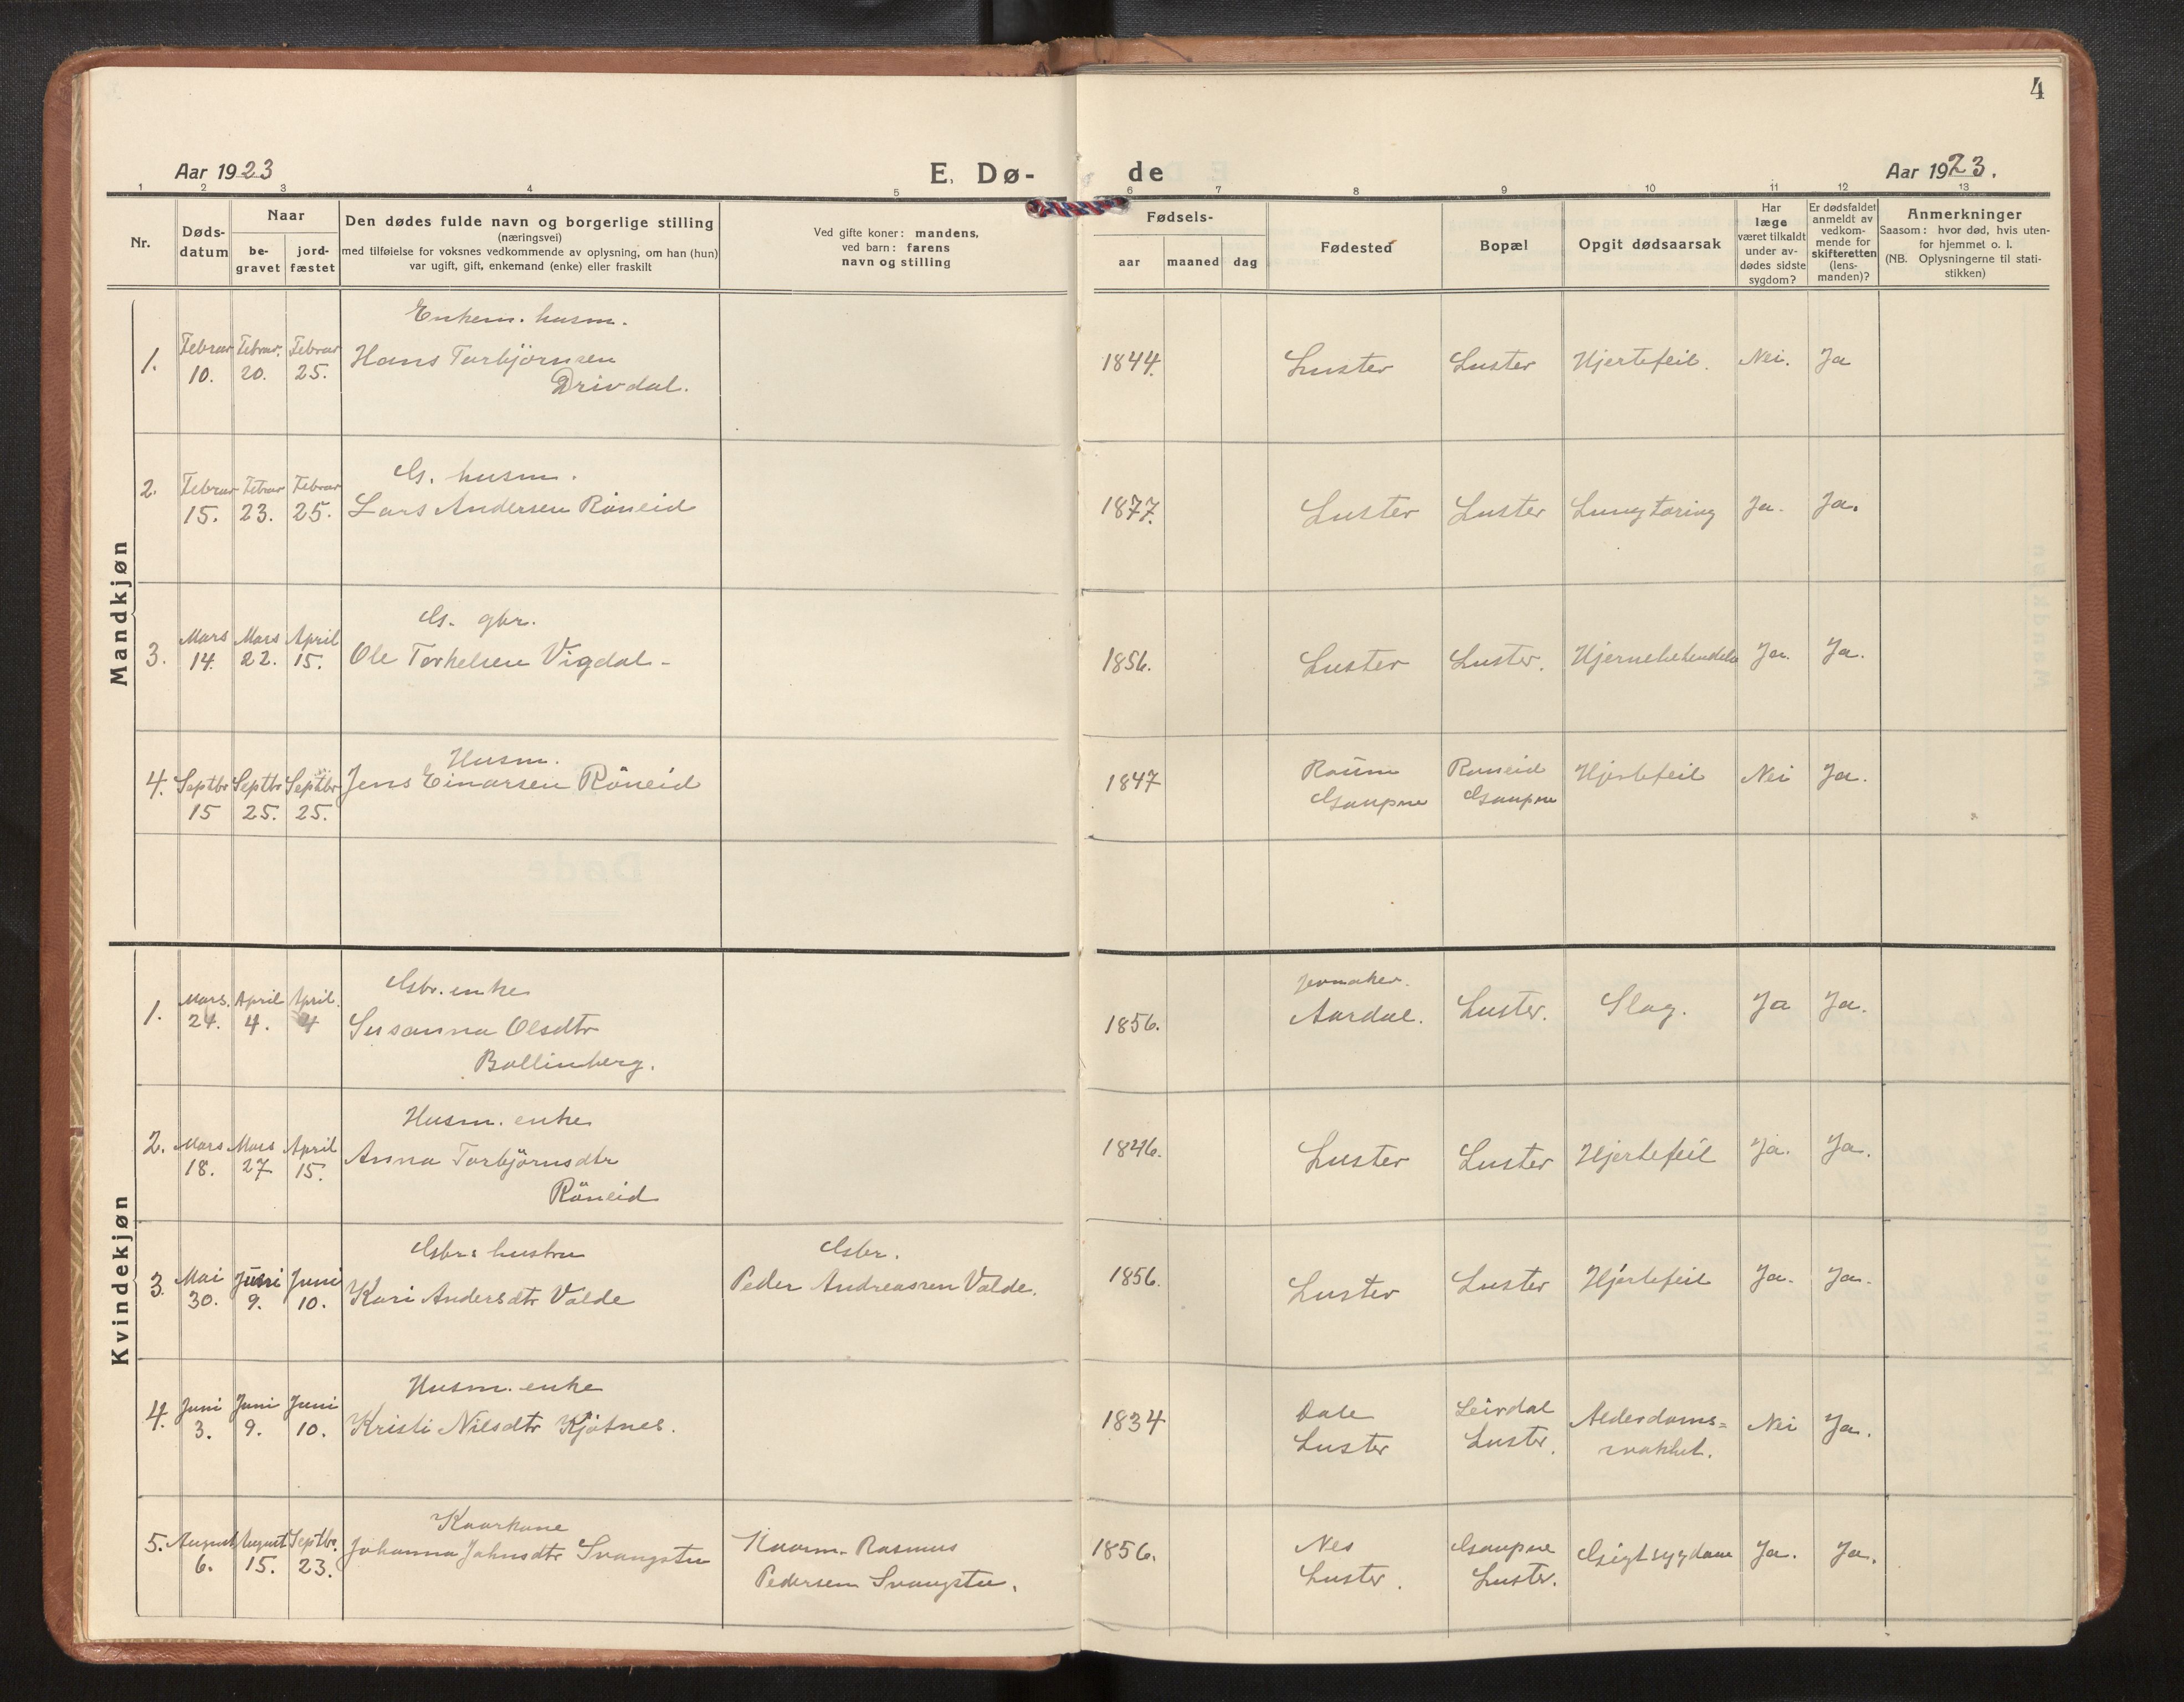 4
Aar 1923
E. Dø-
de
Aar 1923.
1 2 3 4 5 6 7 8 9 10 11 12 13
Nr.
Døds-
datum
Naar
be-
gravet
jord-
fæstet
Den dødes fulde navn og borgerlige stilling
(næringsvei)
med tilføielse for voksnes vedkommende av oplysning, om han (hun)
var ugift, gift, enkemand (enke) eller fraskilt
Ved gifte koner: mandens,
ved barn: farens
navn og stilling
Fødsels-
aar
maaned
dag
Fødested
Bopæl
Opgit dødsaarsak
Har
læge
været tilkaldt
under av-
dødes sidste
sygdom?
Er dødsfaldet
anmeldt av
vedkom-
mende for
skifteretten
(lens-
manden)?
Anmerkninger
Saasom: hvor død, hvis uten-
for hjemmet o. l.
(NB. Oplysningerne til stati-
stikken)
Mandkjøn
Enkem. husm.
1. Februar Februar. Februar Hans Torbjörnsen 1844. Luster Luster Hjertefeil. Nei. Ja
10. 20. 25. Drivdal.
G. husm.
2. Februar Februar Februar Lars Andersen Röneid 1877. Luster Luster Lungtæring Ja. Ja.
15. 23. 25.
G. gbr.
3. Mars Mars April Ole Torkelsen Vigdal- 1856. Luster Luster. Ja. Ja.
14. 22. 15.
Husm.
4. Septbr Septbr Septbr Jens Einarsen Röneid 1847 Röneid Hjertefeil Nei Ja.
15 25. 25. Gaupne Gaupne
Kvindekjøn
Gbr. enke
1. Mars. April April. Susanna Olsdtr 1856. Aardal. Luster. Slag. Ja Ja.
24. 4. 4 Bollinberg.
Husm. enke
2. Mars Mars April Anna Torbjörnsdtr 1846. Luster Luster Hjertefeil Ja. Ja.
18. 27 15. Röneid
Gbr. hustru Gbr.
3. Mai Juni Juni Kari Andersdtr Valde Peder Andreassen Valde. 1856. Luster Luster Hjertefeil Ja. Ja.
30. 9. 10.
Husm. enke
4. Juni Juni Juni Kristi Nilsdtr Kjötnes. 1834 Dale Leirdal Alderdoms= Nei Ja.
3. 9. 10. Luster Luster. svakhet.
Kaarkone
5. August August Septbr. Johanna Johnsdtr Svangstu Kaarm. Rasmus 1856. Nes Gaupne Gigtsygdom Ja. Ja.
6. 15. 23. Pedersen Svangstu. Luster. Luster.